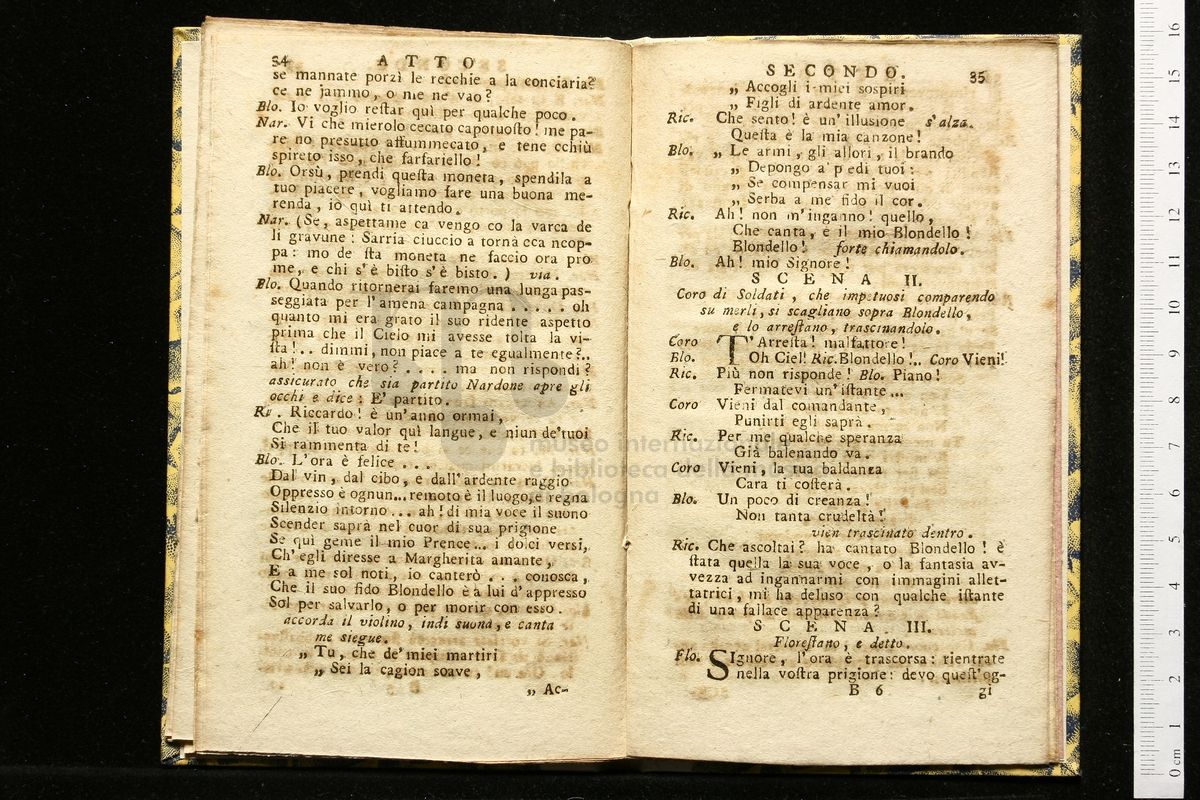 34 ATTO
se mannate porzì le recchie a la conciaria?
ce ne jammo, o me ne vao?
Blo. Io voglio reſtar quì per qualche poco.
Nar. Vi che mierolo cecato capotuoſto! me pa-
re no presutto affummecato, e tene cchiù
spireto isso, che farfariello!
Blo. Orsù, prendi queſta moneta, spendila a
tuo piacere, vogliamo fare una buona me-
renda, io quì ti attendo.
Nar. (Se, aspettame ca vengo co la varca de
li gravune: Sarria ciuccio a tornà cca ncop-
pa: mo de ſta moneta ne faccio ora pro
me, e chi s'è biſto s'è bisto.) via.
Blo. Quando ritornerai faremo una lunga pas-
seggiata per l'amena campagna ..... oh
quanto mi era grato il suo ridente aspetto
prima che il Cielo mi avesse tolta la vi-
ſta!.. dimmi, non piace a te egualmente?..
ah! non è vero? .... ma non rispondi?
assicurato che sia partito Nardone apre gli
occhi e dice: E' partito.
Ri. Riccardo! è un'anno ormai,
Che il tuo valor quì langue, e niun de'tuoi
Si rammenta di te!
Blo. L'ora è felice ...
Dal vin, dal cibo, e dall'ardente raggio
Oppresso è ognun... remoto è il luogo, e regna
Silenzio intorno ... ah! di mia voce il suono
Scender saprà nel cuor di sua prigione
Se quì geme il mio Prence... i dolci versi,
Ch'egli diresse a Margherita amante,
E a me sol noti, io canterò ... conosca,
Che il suo fido Blondello è à lui d'appresso
Sol per salvarlo, o per morir con esso.
accorda il violino, indi suona, e canta
me siegue.
„ Tu, che de'miei martiri
„ Sei la cagion soave,
„ Ac-
SECONDO. 35
„ Accogli i miei sospiri
„ Figli di ardente amor.
Ric. Che sento! è un'illusione s'alza.
Queſta è la mia canzone!
Blo. „ Le armi, gli allori, il brando
„ Depongo a' piedi tuoi:
„ Se compensar mi vuoi
„ Serba a me fido il cor.
Ric. Ah! non m'inganno! quello,
Che canta, è il mio Blondello!
Blondello! forte chiamandolo.
Blo. Ah! mio Signore!
SCENA II.
Coro di Soldati, che impetuosi comparendo
su merli, si scagliano sopra Blondello,
e lo arreſtano, trascinandolo.
Coro T'Arreſta! malfattore!
Blo. Oh Ciel! Ric. Blondello!.. Coro Vieni!
Ric. Più non risponde! Blo. Piano!
Fermatevi un'iſtante...
Coro Vieni dal comandante,
Punirti egli saprà.
Ric. Per me qualche speranza
Già balenando va.
Coro Vieni, la tua baldanza
Cara ti coſterà.
Blo. Un poco di creanza!
Non tanta crudeltà!
vien trascinato dentro.
Ric. Che ascoltai? ha cantato Blondello! è
ſtata quella la sua voce, o la fantasia av-
vezza ad ingannarmi con immagini allet-
tatrici, mi ha deluso con qualche iſtante
di una fallace apparenza?
SCENA III.
Floreſtano, e detto.
Flo. SIgnore, l'ora è trascorsa: rientrate
nella voſtra prigione: devo queſt'og-
B 6 gi
museo internazionale
e biblioteca della musica
bologna
0 cm 1 2 3 4 5 6 7 8 9 10 11 12 13 14 15 16